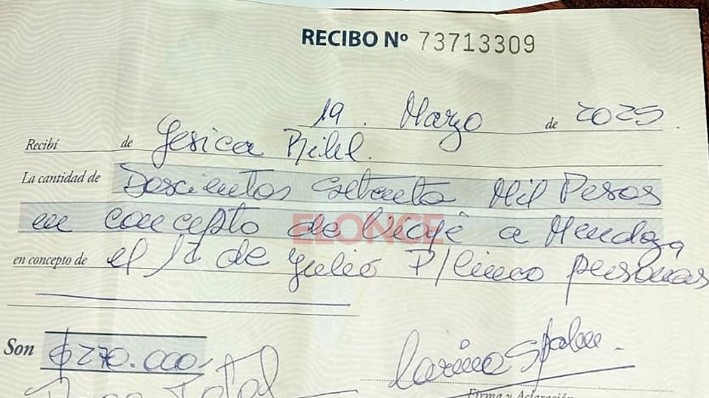 RECIBO Nº 73713309
19. Marzo de 2025.
Recibí de Jesica
La cantidad de Doscientos Setenta Mil Pesos
en concepto de Viaje a Mendoza
ELONCE
en concepto de el de Julio P/Cinco personas
Son $270.000
Total
Firma y Aclaración